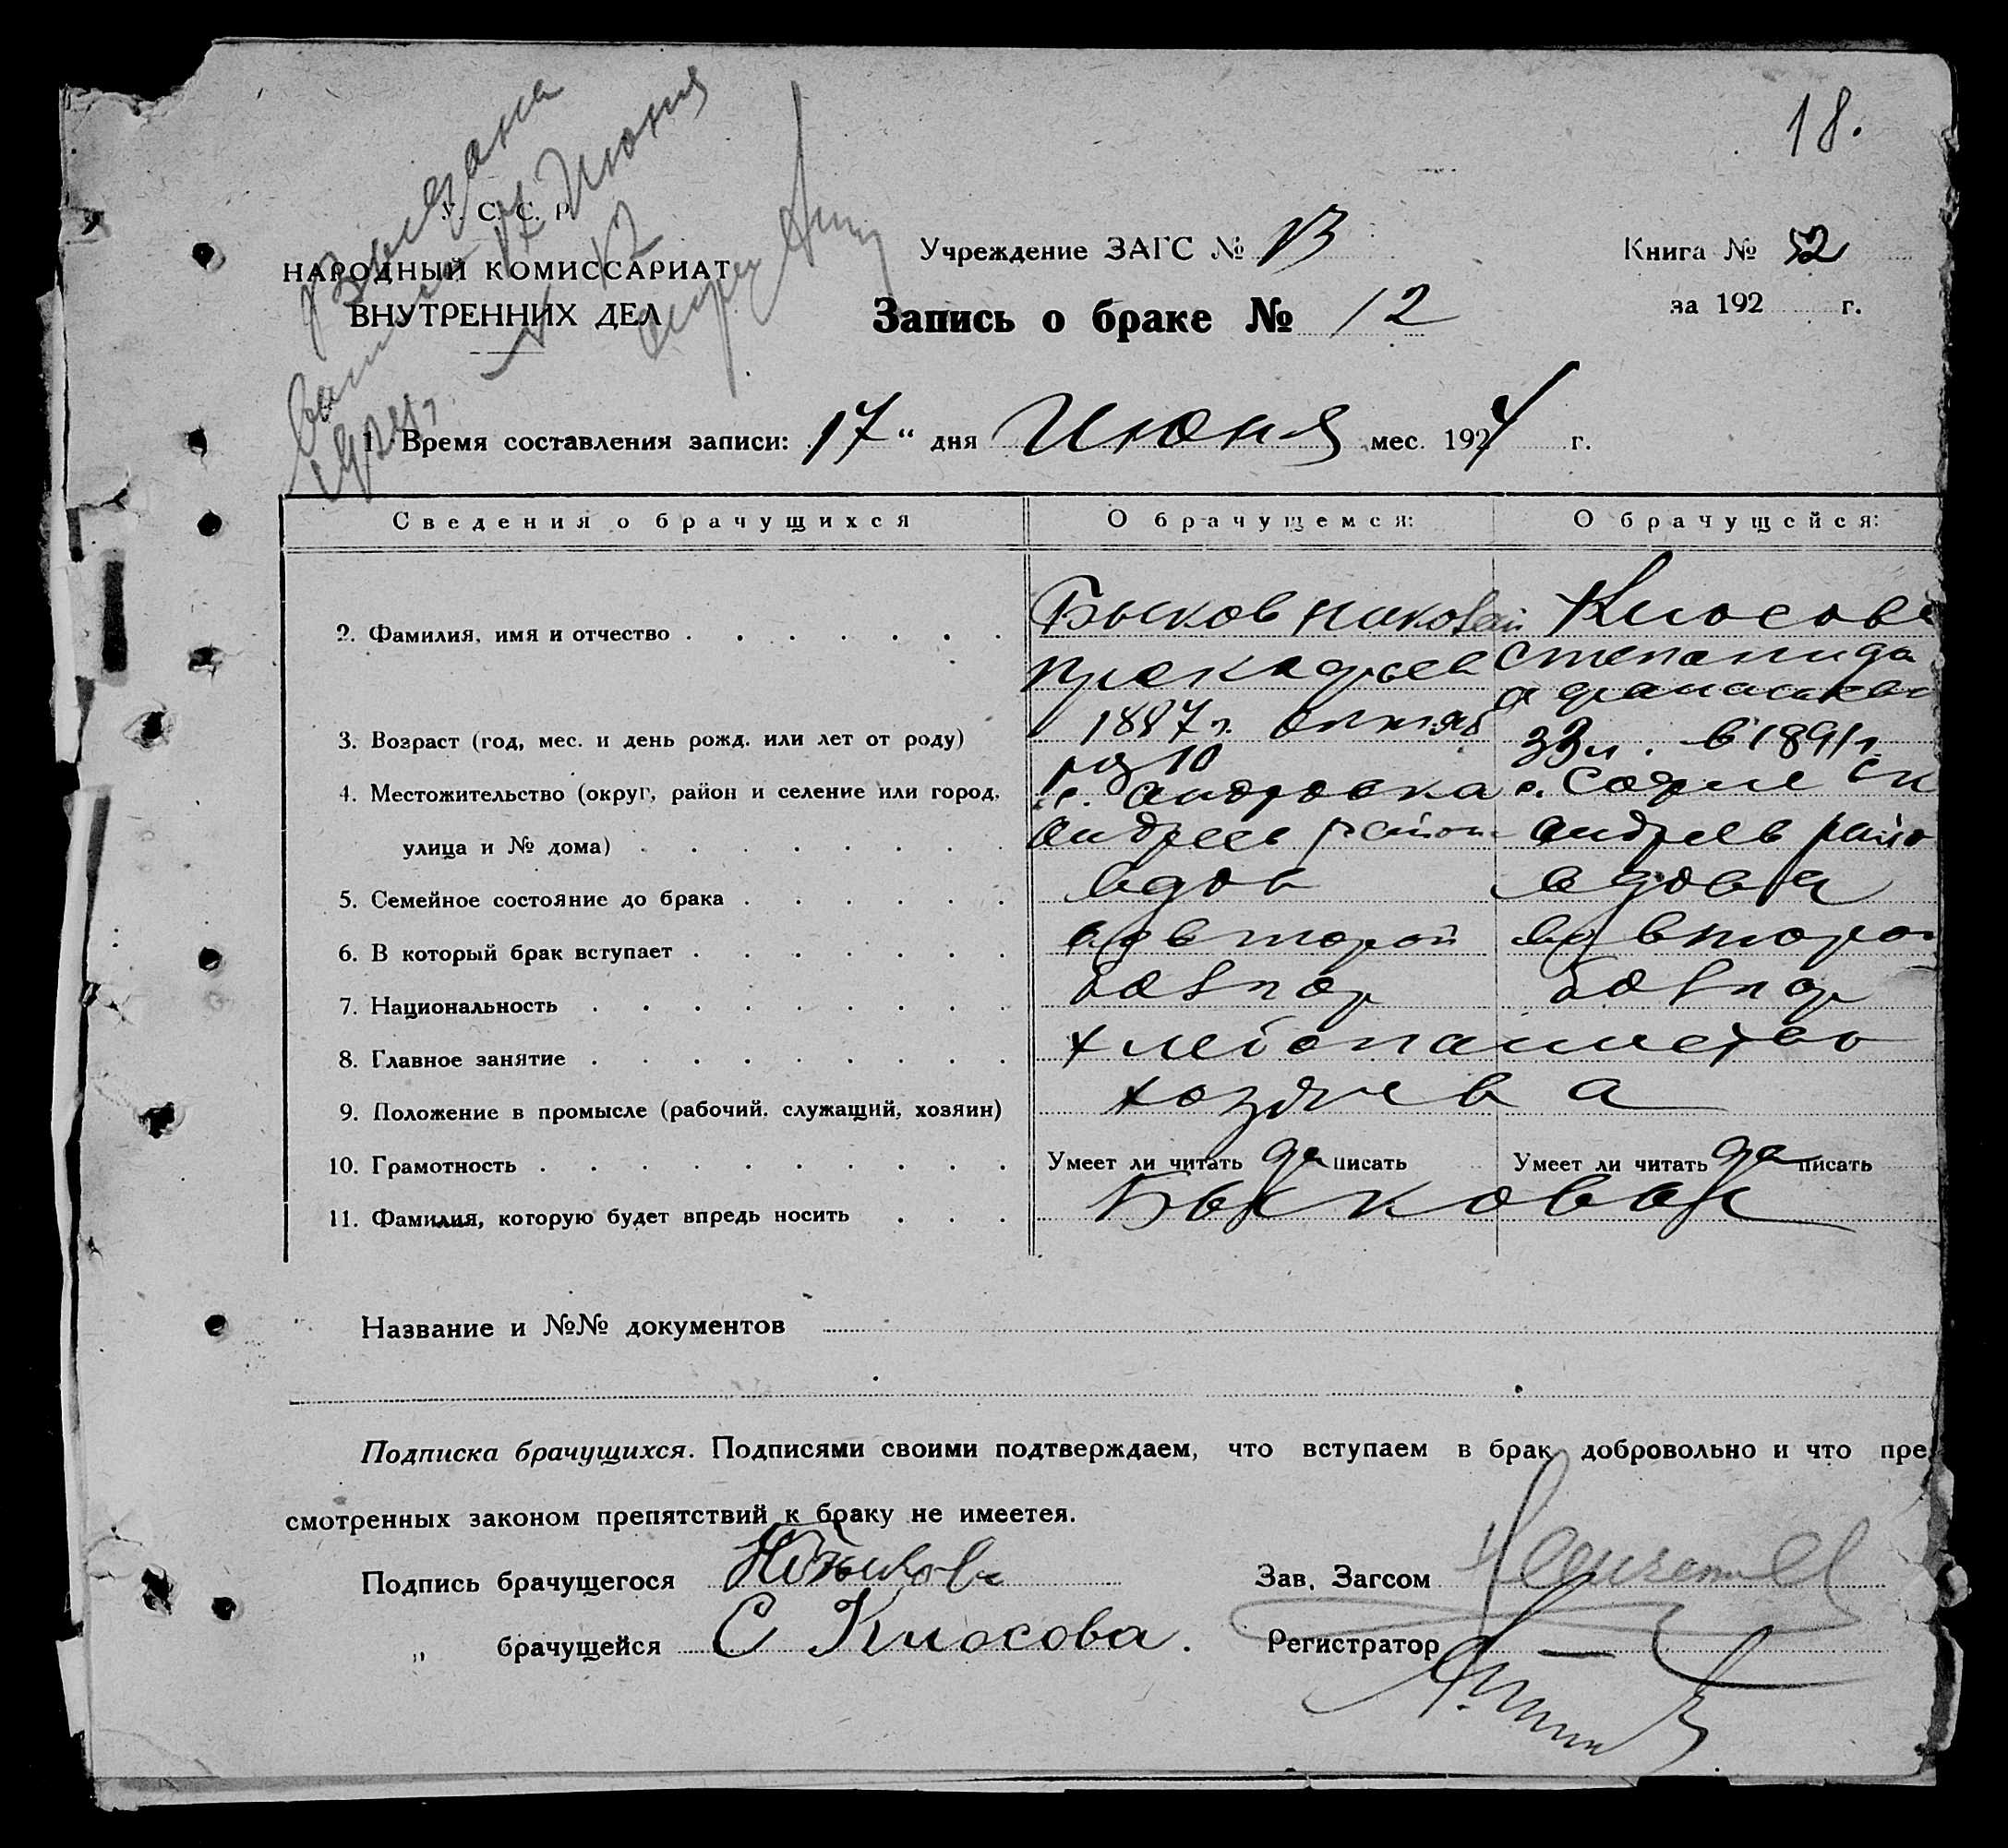 18.
Выдана
выпись 17 Июня
1924 г. № 12
У. С. С. Р.
НАРОДНЫЙ КОМИССАРИАТ
ВНУТРЕННИХ ДЕЛ
Учреждение ЗАГС №
Книга № 52
за 192 г.
Запись о браке № 12
1. Время составления записи: 17 " дня Июня мес. 1924 г.
Сведения о брачущихся О брачущемся: О брачущейся:
2. Фамилия, имя и отчество Быков Николай Клосова
Степанида
3. Возраст (год, мес. и день рожд. или лет от роду) 1887 г. 33 л. в 1891 г.
10
4. Местожительство (округ, район и селение или город, с.
улица и № дома) Андреев район Андреев райо
5. Семейное состояние до брака вдов вдова
6. В который брак вступает во второй во второй
7. Национальность болгар болгар
8. Главное занятие хлебопашество
9. Положение в промысле (рабочий, служащий, хозяин)
10. Грамотность Умеет ли читать да писать Умеет ли читать да писать
11. Фамилия, которую будет впредь носить Быковы
Название и №№ документов
Подписка брачущихся. Подписями своими подтверждаем, что вступаем в брак добровольно и что пре
смотренных законом препятствий к браку не имеетея.
Подпись брачущегося Н Быков Зав. Загсом
„ брачущейся С Клосова. Регистратор